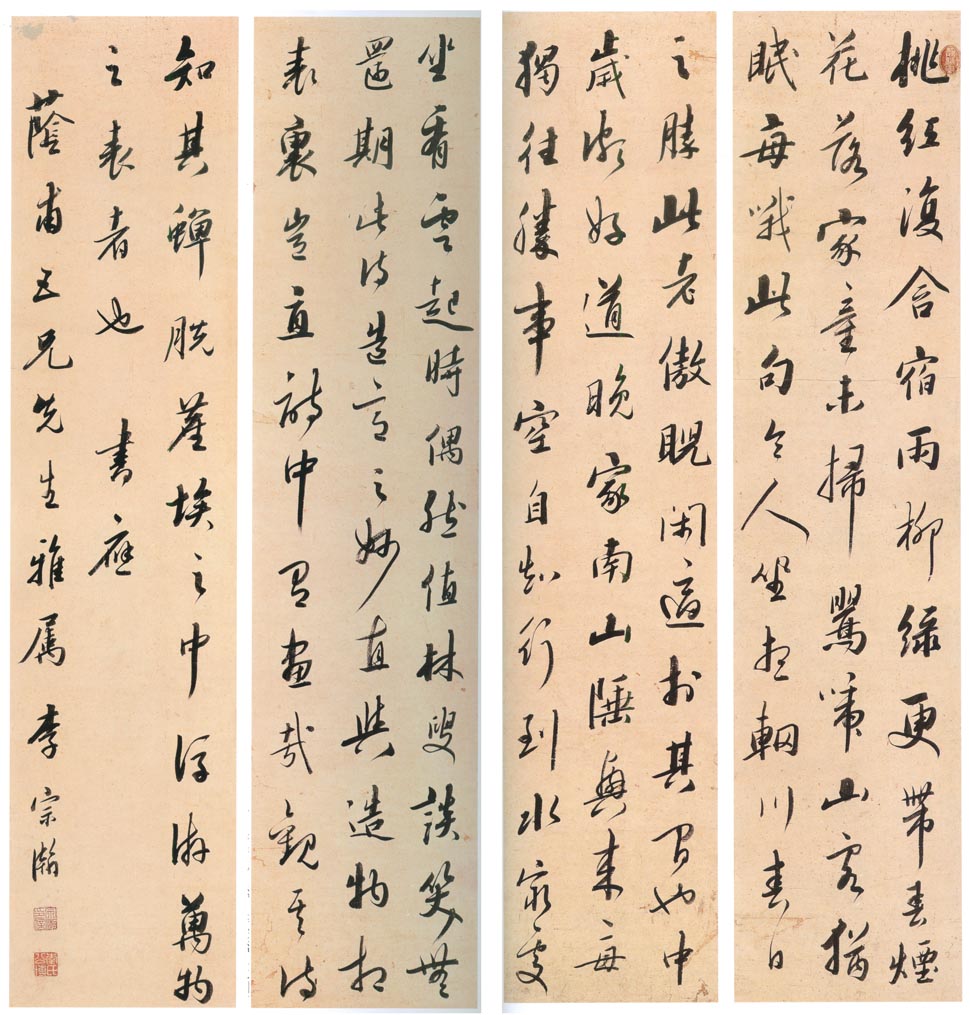 桃紅復含宿雨柳綠更帶春煙
花落家童未掃鶯啼山客猶
眠每哦此句令人坐想輞川春日
之勝此老傲睨閑適於其間也中
歲頗好道晚家南山陲興來每
獨往勝事空自知行到水窮處
坐看雲起時偶然值林叟談笑無
還期此詩造意之妙直與造物相
表裏豈直詩中有畫哉觀其詩
知其蟬脫塵埃之中浮游萬物
之表者也 書應
蔭甫五兄先生雅屬 李宗瀚